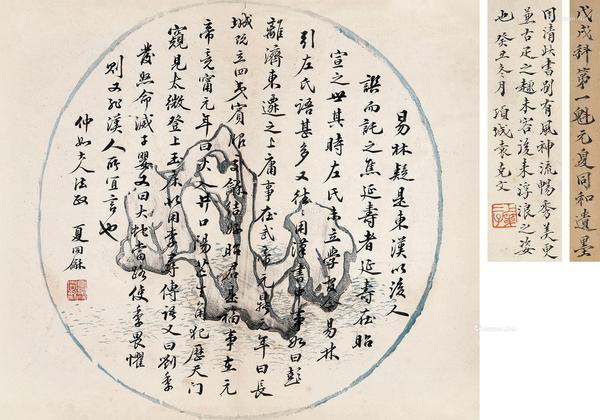 戊戌科第一魁元夏同和遺墨
同清此書別有風神流暢秀美更
兼古疋之趣未容後来浮浪之姿
也 癸丑冬月 項城袁克文
易林疑是東漢以後人
譔而託之焦延壽者延壽在昭
宣之世其時左氏未立學官今易林
引左氏語甚多又往往用漢書中事如曰彭
離濟東遷之上庸事在武帝元鼎元年曰長
城既立四夷賓服交龢結好昭君是福事在元
帝竟甯元年曰火入井口陽芒生角犯歷天門
窺見太微登上玉床似用李尋傳語又曰劉季
發怒命滅子嬰又曰大蛇當路使季畏懼
則又非漢人所宜言也
仲如大人法政 夏同龢